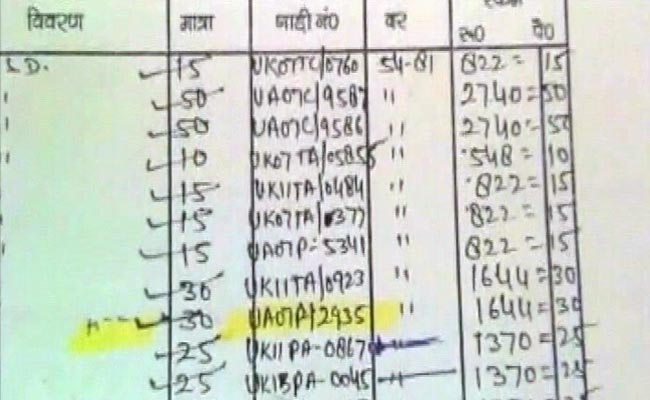 विवरण मात्रा गाड़ी नं0 दर
रू0 पै0
S.D. 15 UK07TC/0760 54-81 822=15
" 50 UA07C/9587 " 2740=50
" 50 UA07C/9586 " 2740=50
" 10 UK07TA/05855 " 548=10
15 UK11TA/0484 " 822=15
" 15 UK07TA/0377 " 822=15
" 15 UA07P-5341 " 822=15
30 UK11TA/0923 " 1644=30
30 UA07P/2935 " 1644=30
25 UK11PA-0867 " 1370=25
25 UK13PA-0045 " 1370=25